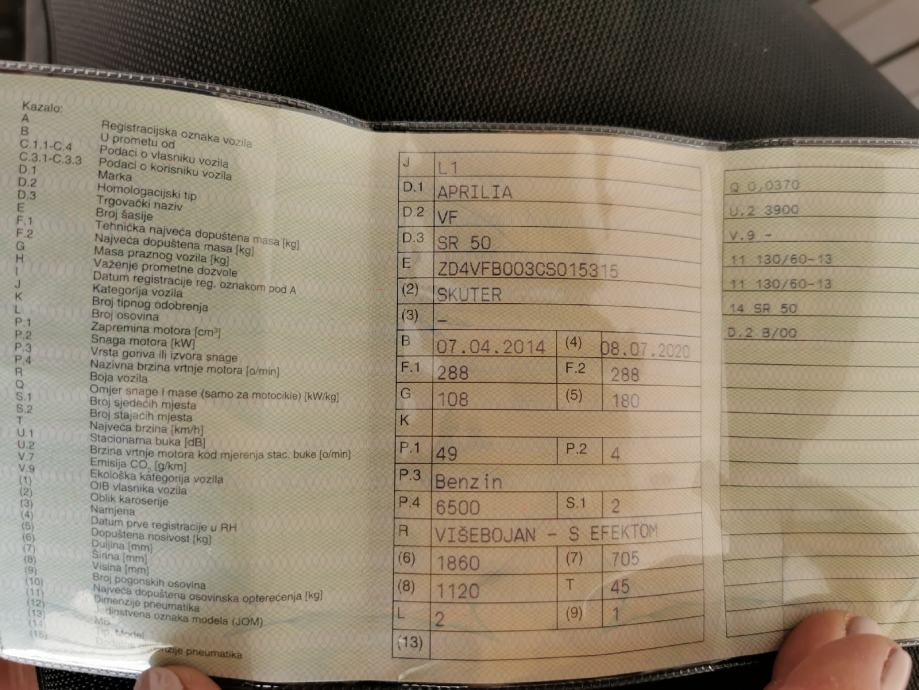 Kazalo:
A Registracijska oznaka vozila
B U prometu od
C.1.1-C.4 Podaci o vlasniku vozila
C.3.1-C.3.3 Podaci o korisniku vozila
D.1 Marka
D.2 Homologacijski tip
D.3 Trgovački naziv
E Broj šasije
F.1 Tehnička najveća dopuštena masa [kg]
F.2 Najveća dopuštena masa [kg]
G Masa praznog vozila [kg]
H Važenje prometne dozvole
I Datum registracije reg. oznakom pod A
J Kategorija vozila
K Broj tipnog odobrenja
L Broj osovina
P.1 Zapremina motora [cm³]
P.2 Snaga motora [kW]
P.3 Vrsta goriva ili izvora snage
P.4 Nazivna brzina vrtnje motora [o/min]
R Boja vozila
Q Omjer snage i mase (samo za motocikle) [kW/kg]
S.1 Broj sjedećih mjesta
S.2 Broj stajaćih mjesta
T Najveća brzina [km/h]
U.1 Stacionarna buka [dB]
U.2 Brzina vrtnje motora kod mjerenja stac. buke [o/min]
V.7 Emisija CO₂ [g/km]
V.9 Ekološka kategorija vozila
(1) OIB vlasnika vozila
(2) Oblik karoserije
(3) Namjena
(4) Datum prve registracije u RH
(5) Dopuštena nosivost [kg]
(6) Duljina [mm]
(7) Širina [mm]
(8) Visina [mm]
(9) Broj pogonskih osovina
(10) Najveća dopuštena osovinska opterećenja [kg]
(11) Dimenzije pneumatika
(12) Jedinstvena oznaka modela (JOM)
(13) MB
(14) Tip, Model
(15) pneumatika
J L1
D.1 APRILIA
D.2 VF
D.3 SR 50
E ZD4VFB003CS015315
(2) SKUTER
(3) –
B 07.04.2014 (4) 08.07.2020
F.1 288 F.2 288
G 108 (5) 180
K
P.1 49 P.2 4
P.3 Benzin
P.4 6500 S.1 2
R VIŠEBOJAN - S EFEKTOM
(6) 1860 (7) 705
(8) 1120 T 45
L 2 (9) 1
(13)
Q 0,0370
U.2 3900
V.9 -
11 130/60-13
11 130/60-13
14 SR 50
D.2 B/00